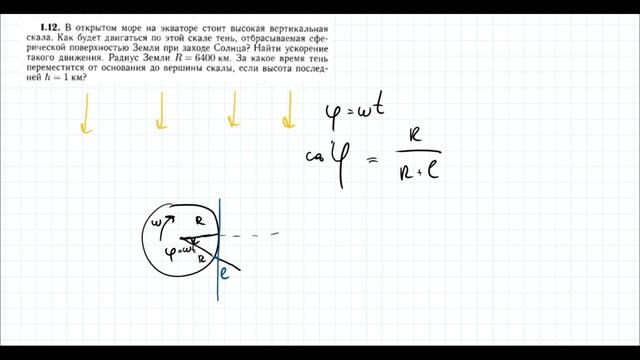 1.12. В открытом море на экваторе стоит высокая вертикальная
скала. Как будет двигаться по этой скале тень, отбрасываемая сфе-
рической поверхностью Земли при заходе Солнца? Найти ускорение
такого движения. Радиус Земли R = 6400 км. За какое время тень
переместится от основания до вершины скалы, если высота послед-
ней h = 1 км?
φ = ωt
cos φ = R / (R + l)
ω R
φ=ωt R
l